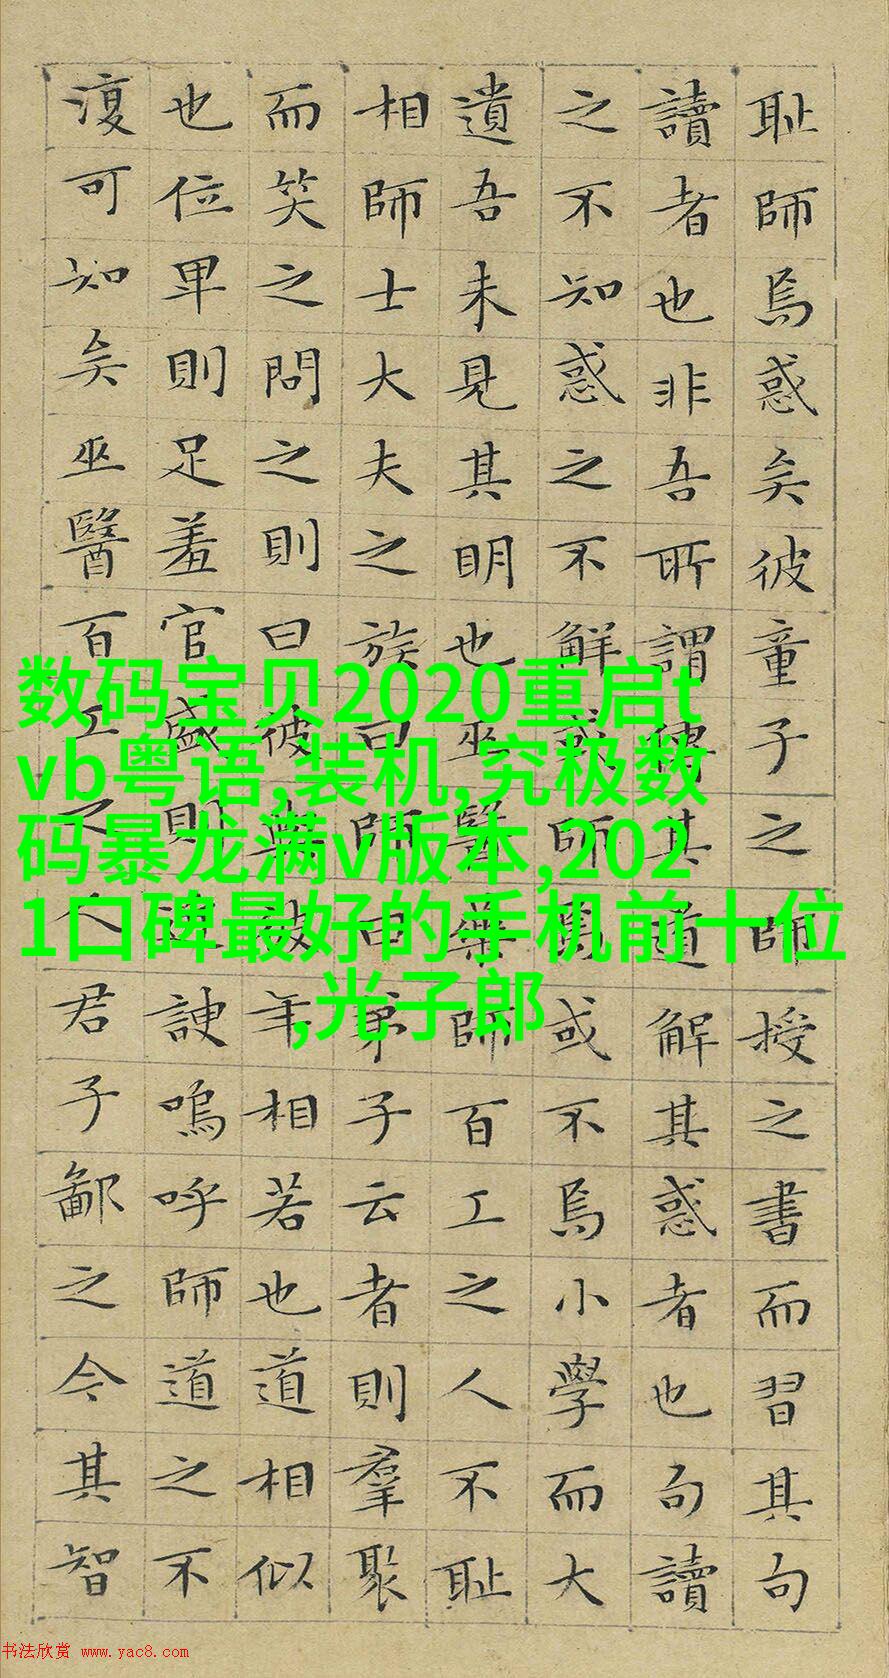 耻師焉惑矣彼童子之師授之書而習其句
讀者也非吾所謂傳其道解其惑者也句讀
之不知惑之不解或師焉或不焉小學而大
遺吾未見其明也巫醫藥師百工之人不耻
相師士大夫之族曰師曰弟子云者則羣聚
而笑之問之則曰彼與彼年相若也道相似
也位卑則足羞官盛則近諛嗚呼師道之不
復可知矣巫醫百工之人君子鄙之今其智
数码宝贝2020重启t
vb粤语,装机,究极数
码暴龙满v版本,202
1口碑最好的手机前十位
,光子郎
书法欣赏 www.yac8.com